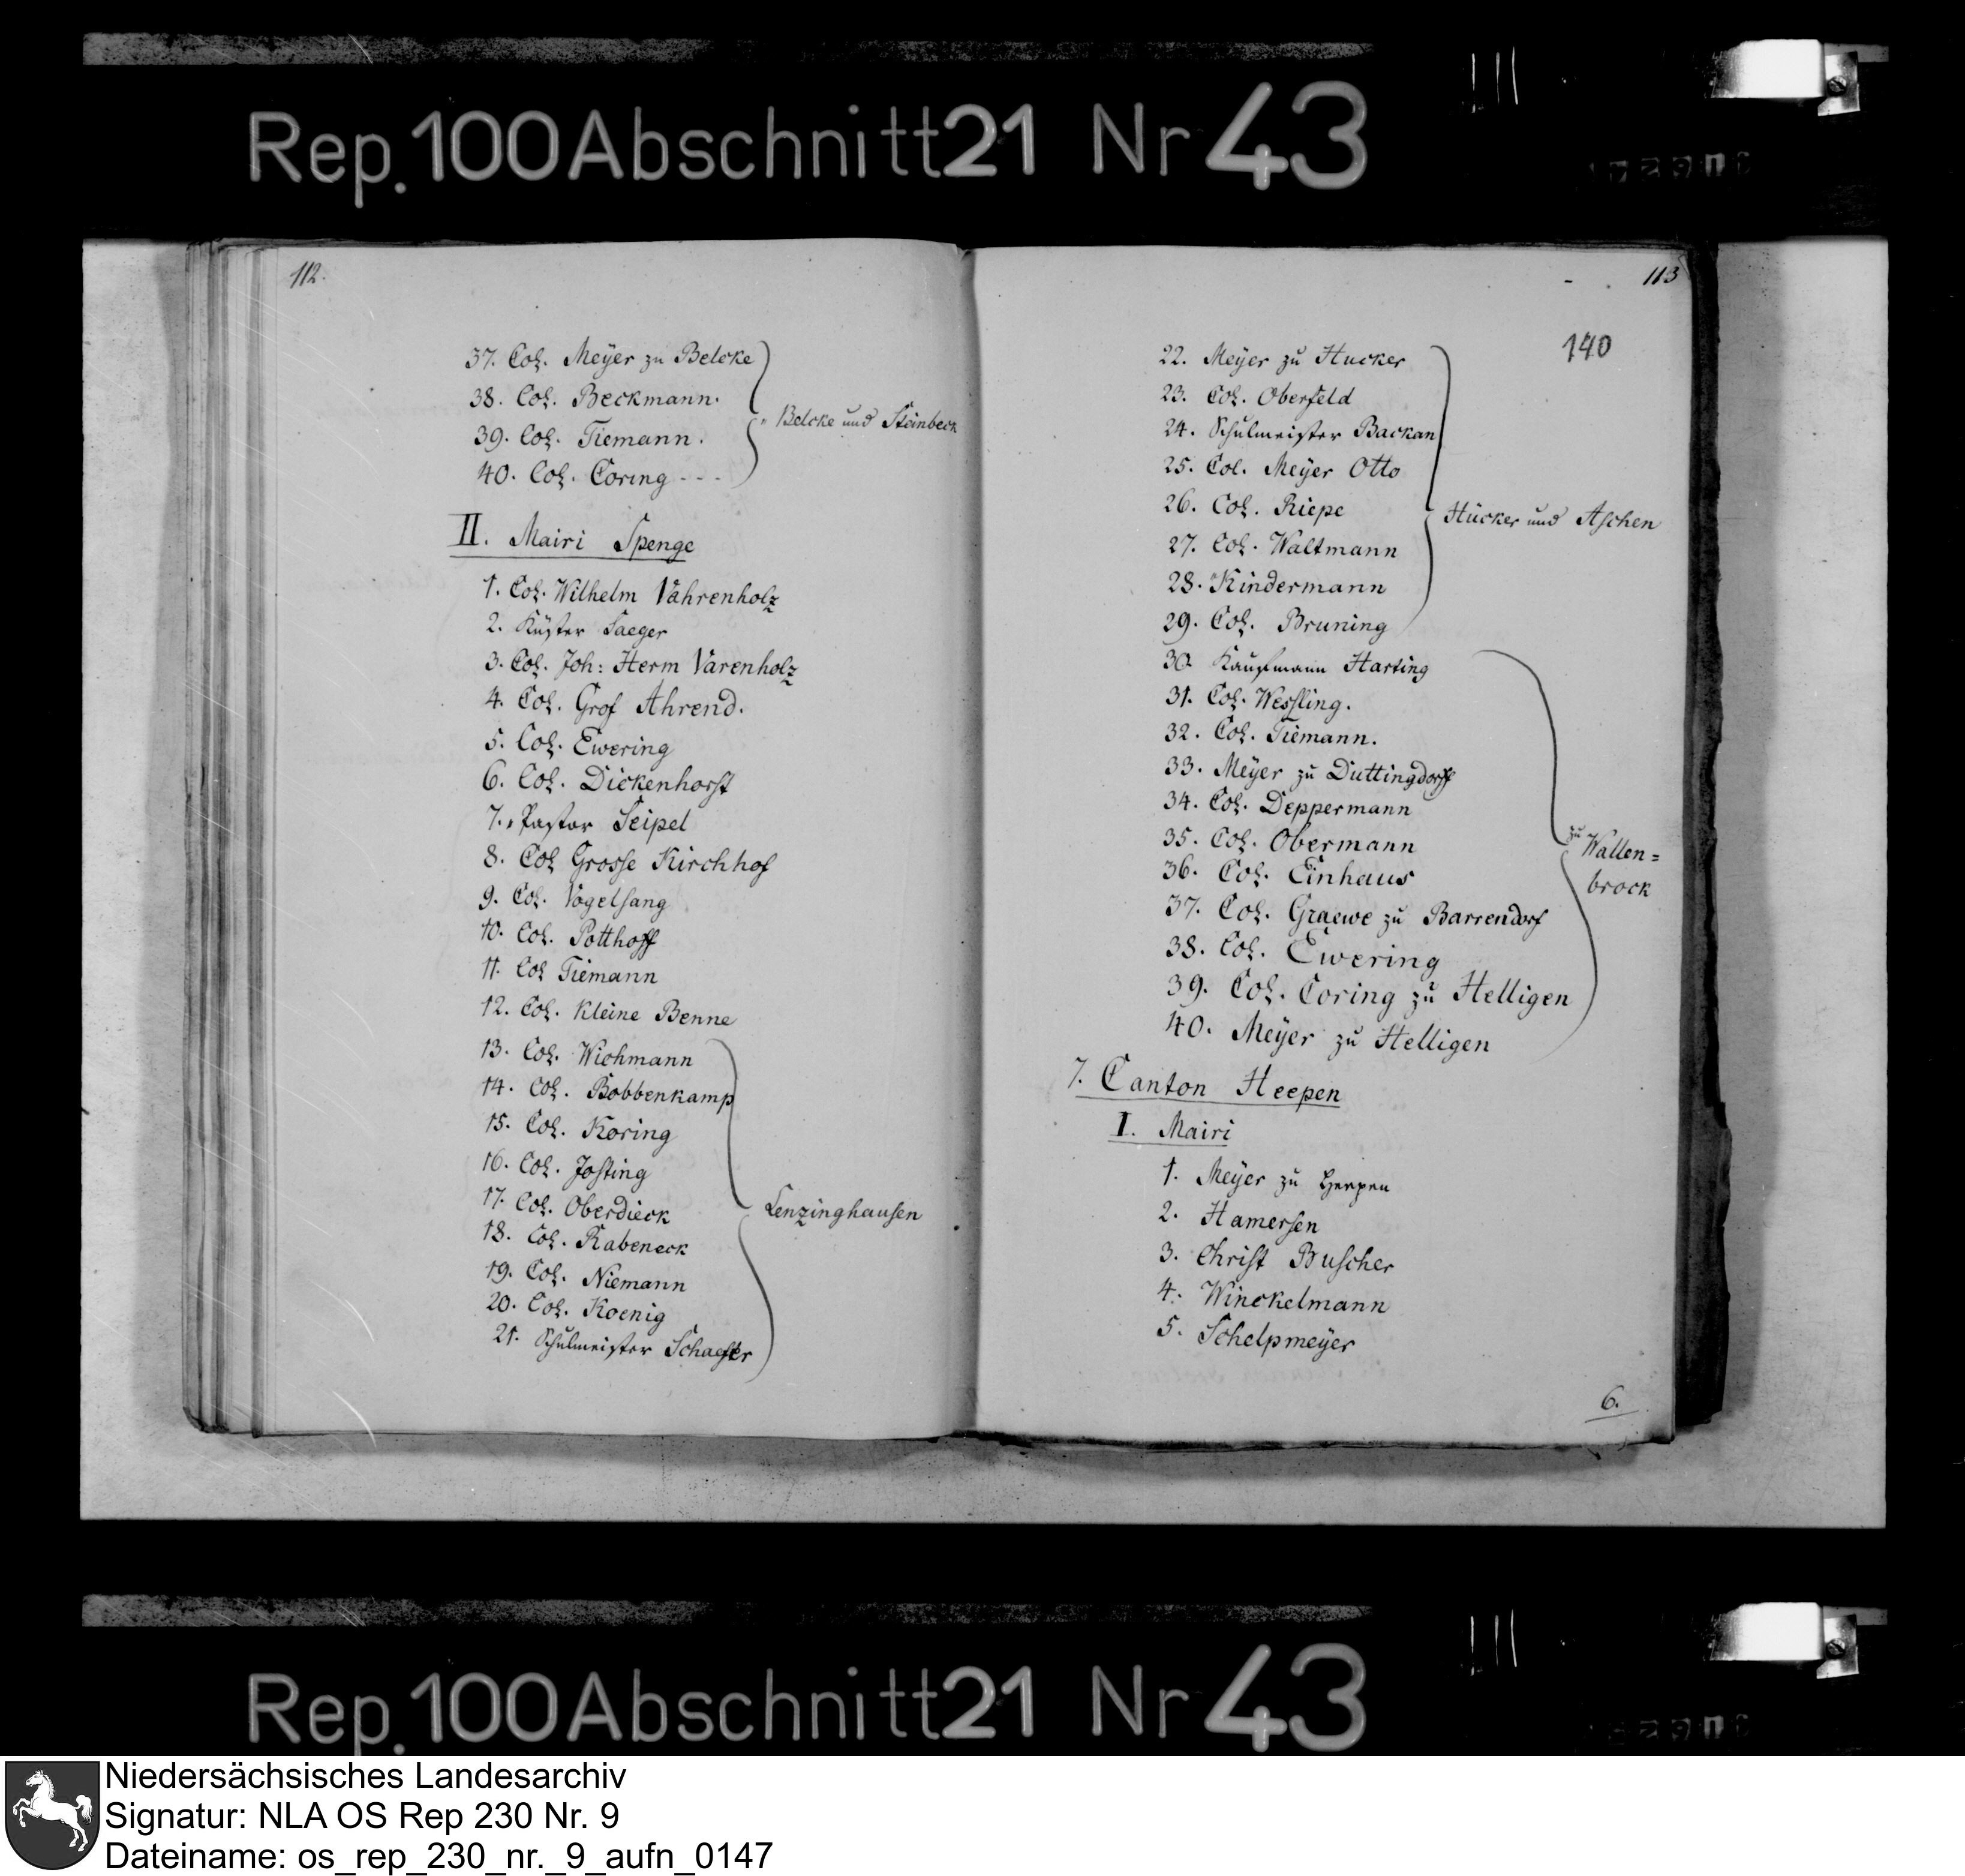 Rep. 100 Abschnitt 21 Nr 43
112.
37. Col. Meÿer zu Belcke
38. Col. Beckmann.
39. Col. Tiemann.
40. Col. Coring - - -
Belcke und Steinbeck
II. Mairi Spenge
1. Col. Wilhelm Vahrenholz
2. Küster Saeger
3. Col. Joh: Herm Varenholz
4. Col. Grof Ahrend.
5. Col. Ewering
6. Col. Dickenhorst
7. Pastor Seipel
8. Col Grosse Kirchhof
9. Col. Vogelsang
10. Col. Potthoff
11. Col Tiemann
12. Col. Kleine Benne
13. Col. Wichmann
14. Col. Bobbenkamp
15. Col. Koring
16. Col. Josting
17. Col. Oberdieck
18. Col. Rabeneck
19. Col. Niemann
20. Col. Koenig
21. Schulmeister Schaefer
Lenzinghausen
113
140
22. Meÿer zu Hucker
23. Col. Oberfeld
24. Schulmeister Backan
25. Col. Meÿer Otto
26. Col. Riepe
27. Col. Waltmann
28. Kindermann
29. Col. Bruning
Hücker und Aschen
30. Kaufmann Harting
31. Col. Wessling.
32. Col. Tiemann.
33. Meÿer zu Duttingdorff
34. Col. Deppermann
35. Col. Obermann
36. Col. Einhaus
37. Col. Graewe zu Barrendorf
38. Col. Ewering
39. Col. Coring zu Helligen
40. Meÿer zu Helligen
zu Wallen=
brock
7. Canton Heepen
I. Mairi
1. Meÿer zu Heepen
2. Hamersen
3. Christ Buscher
4. Winckelmann
5. Schelpmeÿer
6.
Rep. 100 Abschnitt 21 Nr 43
Niedersächsisches Landesarchiv
Signatur: NLA OS Rep 230 Nr. 9
Dateiname: os_rep_230_nr._9_aufn_0147